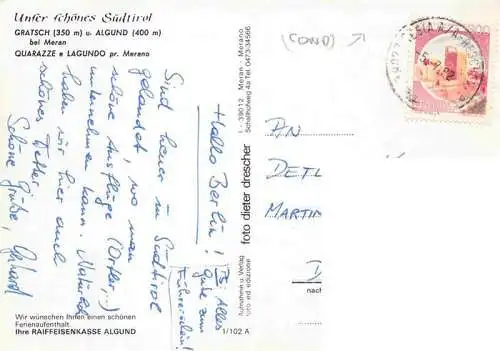 Unser schönes Südtirol
GRATSCH (350 m) u. ALGUND (400 m)
bei Meran
QUARAZZE e LAGUNDO pr. Merano
Hallo Berlin!
Sind heuer in Südtirol
gelandet, wo man
schöne Ausflüge (Ortler,..)
unternehmen kann. Natürlich
haben wir hier auch
schönes Wetter.
Schöne Grüße, Gerhard
PS: Alles
Gute zum
Führerschein!
Wir wünschen Ihnen einen schönen
Ferienaufenthalt.
Ihre RAIFFEISENKASSE ALGUND
1/102 A
Aufnahme u. Verlag
foto ed edizione
foto dieter drescher
I - 39012 Meran - Merano
Schallhofweg 4a Tel. 0473/34566
AN
DETL
MARTIN
D
nach